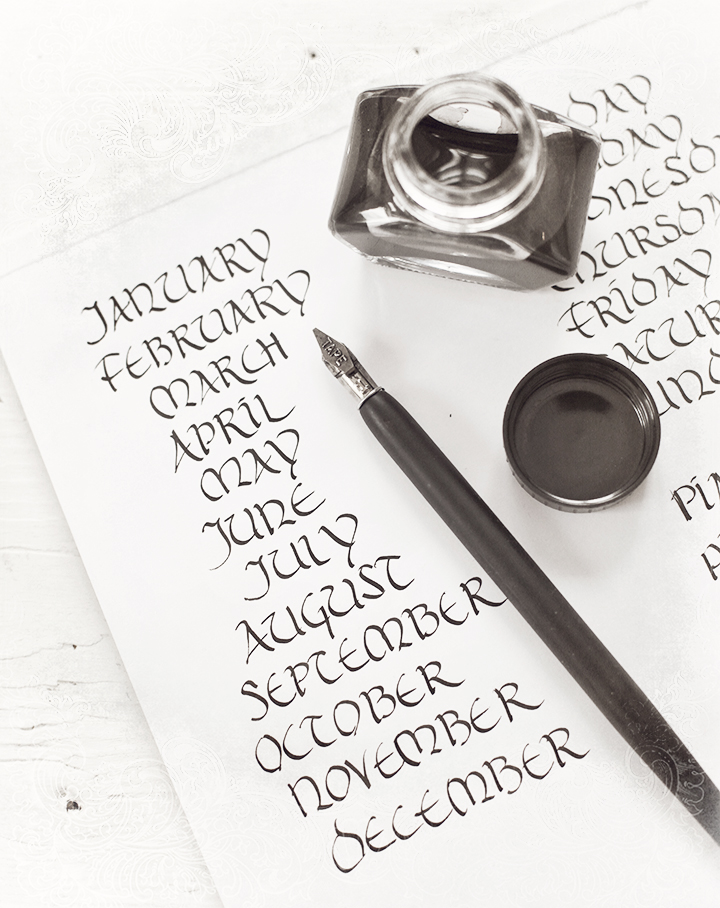 JANUARY
FEBRUARY
MARCH
APRIL
MAY
JUNE
JULY
AUGUST
SEPTEMBER
OCTOBER
NOVEMBER
DECEMBER
DAY
DAY
NESD
THURSD
FRIDAY
ATUR
UND
TAPE